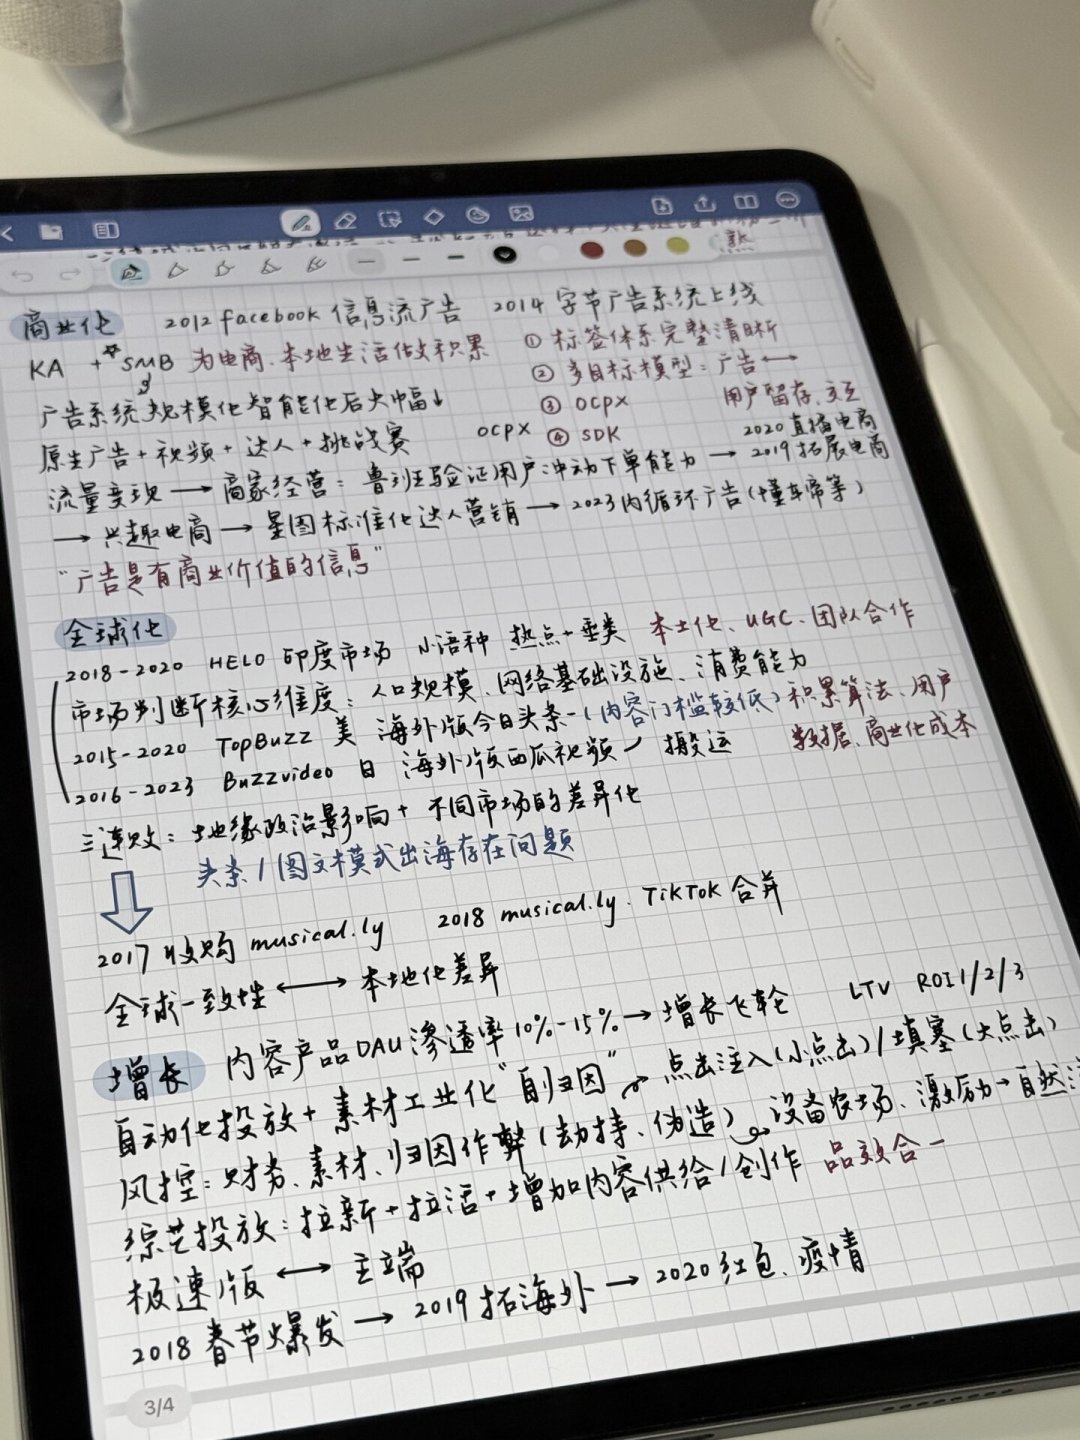 熟
商业化 2012 facebook 信息流广告 2014 字节广告系统上线
KA + SMB 为电商、本地生活做积累 ① 标签体系完整清晰
② 多目标模型：广告⟷
广告系统规模化智能化后大幅↓ ③ OCPX 用户留存、交互
原生广告+视频+达人+挑战赛 OCPX ④ SDK 2020 直播电商
流量变现→商家经营：鲁班验证用户冲动下单能力→2019拓展电商
→兴趣电商→星图标准化达人营销→2023内循环广告(懂车帝等)
“广告是有商业价值的信息”
全球化
2018-2020 HELO 印度市场 小语种 热点+垂类 本土化、UGC、团队合作
市场判断核心维度：人口规模、网络基础设施、消费能力
2015-2020 TopBuzz 美 海外版今日头条-(内容门槛较低)积累算法、用户
2016-2023 Buzzvideo 日 海外版西瓜视频/搬运 数据、商业化成本
三连败：地缘政治影响+不同市场的差异化
头条/图文模式出海存在问题
2017收购musical.ly 2018 musical.ly、TikTok合并
全球一致性⟷本地化差异
增长 内容产品DAU渗透率10%-15%→增长飞轮 LTV ROI1/2/3
自动化投放+素材工业化“自归因” 点击注入(小点击)/填塞(大点击)
风控：财务、素材、归因作弊(劫持、伪造) 设备农场、激励→自然
综艺投放：拉新+拉活+增加内容供给/创作 品效合一
极速版⟷主端
2018春节爆发→2019拓海外→2020红包、疫情
3/4